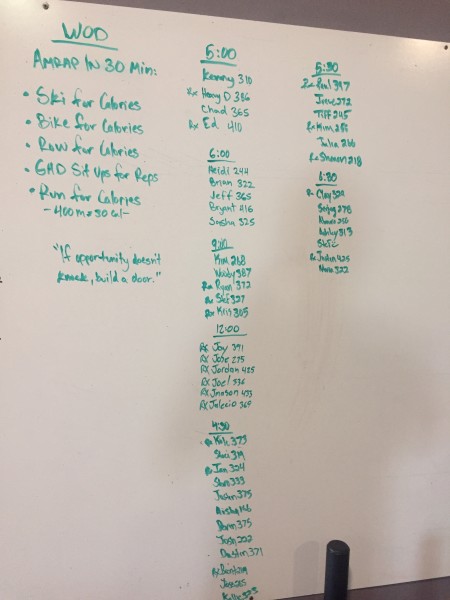 WOD
AMRAP IN 30 Min:
• Ski for Calories
• Bike for Calories
• Row for Calories
• GHD Sit Ups for Reps
• Run for Calories
- 400m = 30 Cal -
"If opportunity doesn't
knock, build a door."
5:00
Kenny 310
Rx Henry D 386
Chad 365
Rx Ed 410
6:00
Heidi 244
Brian 322
Jeff 365
Bryant 416
Sasha 325
9:00
Kim 268
Woody 387
Rx Ryan 372
Rx Stef 327
Rx Kris 305
12:00
RX Jay 391
RX Jose 275
RX Jordan 425
RX Joel 336
RX Jayson 433
RX Jalecio 369
4:30
Rx Kyle 373
Staci 314
Rx Ian 324
Stan 333
Justin 375
Daren 375
Josh 222
Dustin 371
Rx
Kelly 323
5:30
Rx Paul 397
372
Tiff 245
Rx Kim 281
Julia 266
Rx Shannon 218
6:30
Rx Clay 324
278
Ashley 313
Stefc
Rx Justin 425
322